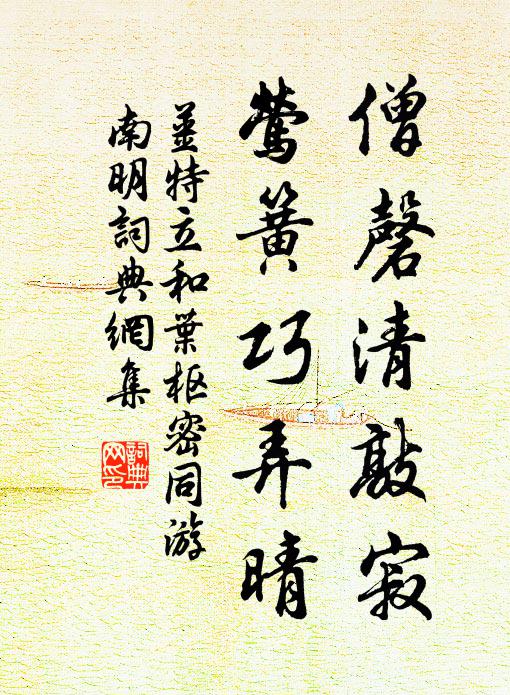 僧磬清敲寂
莺簧巧弄晴
姜特立和葉枢密同游
南明詞典網集
詞典网印